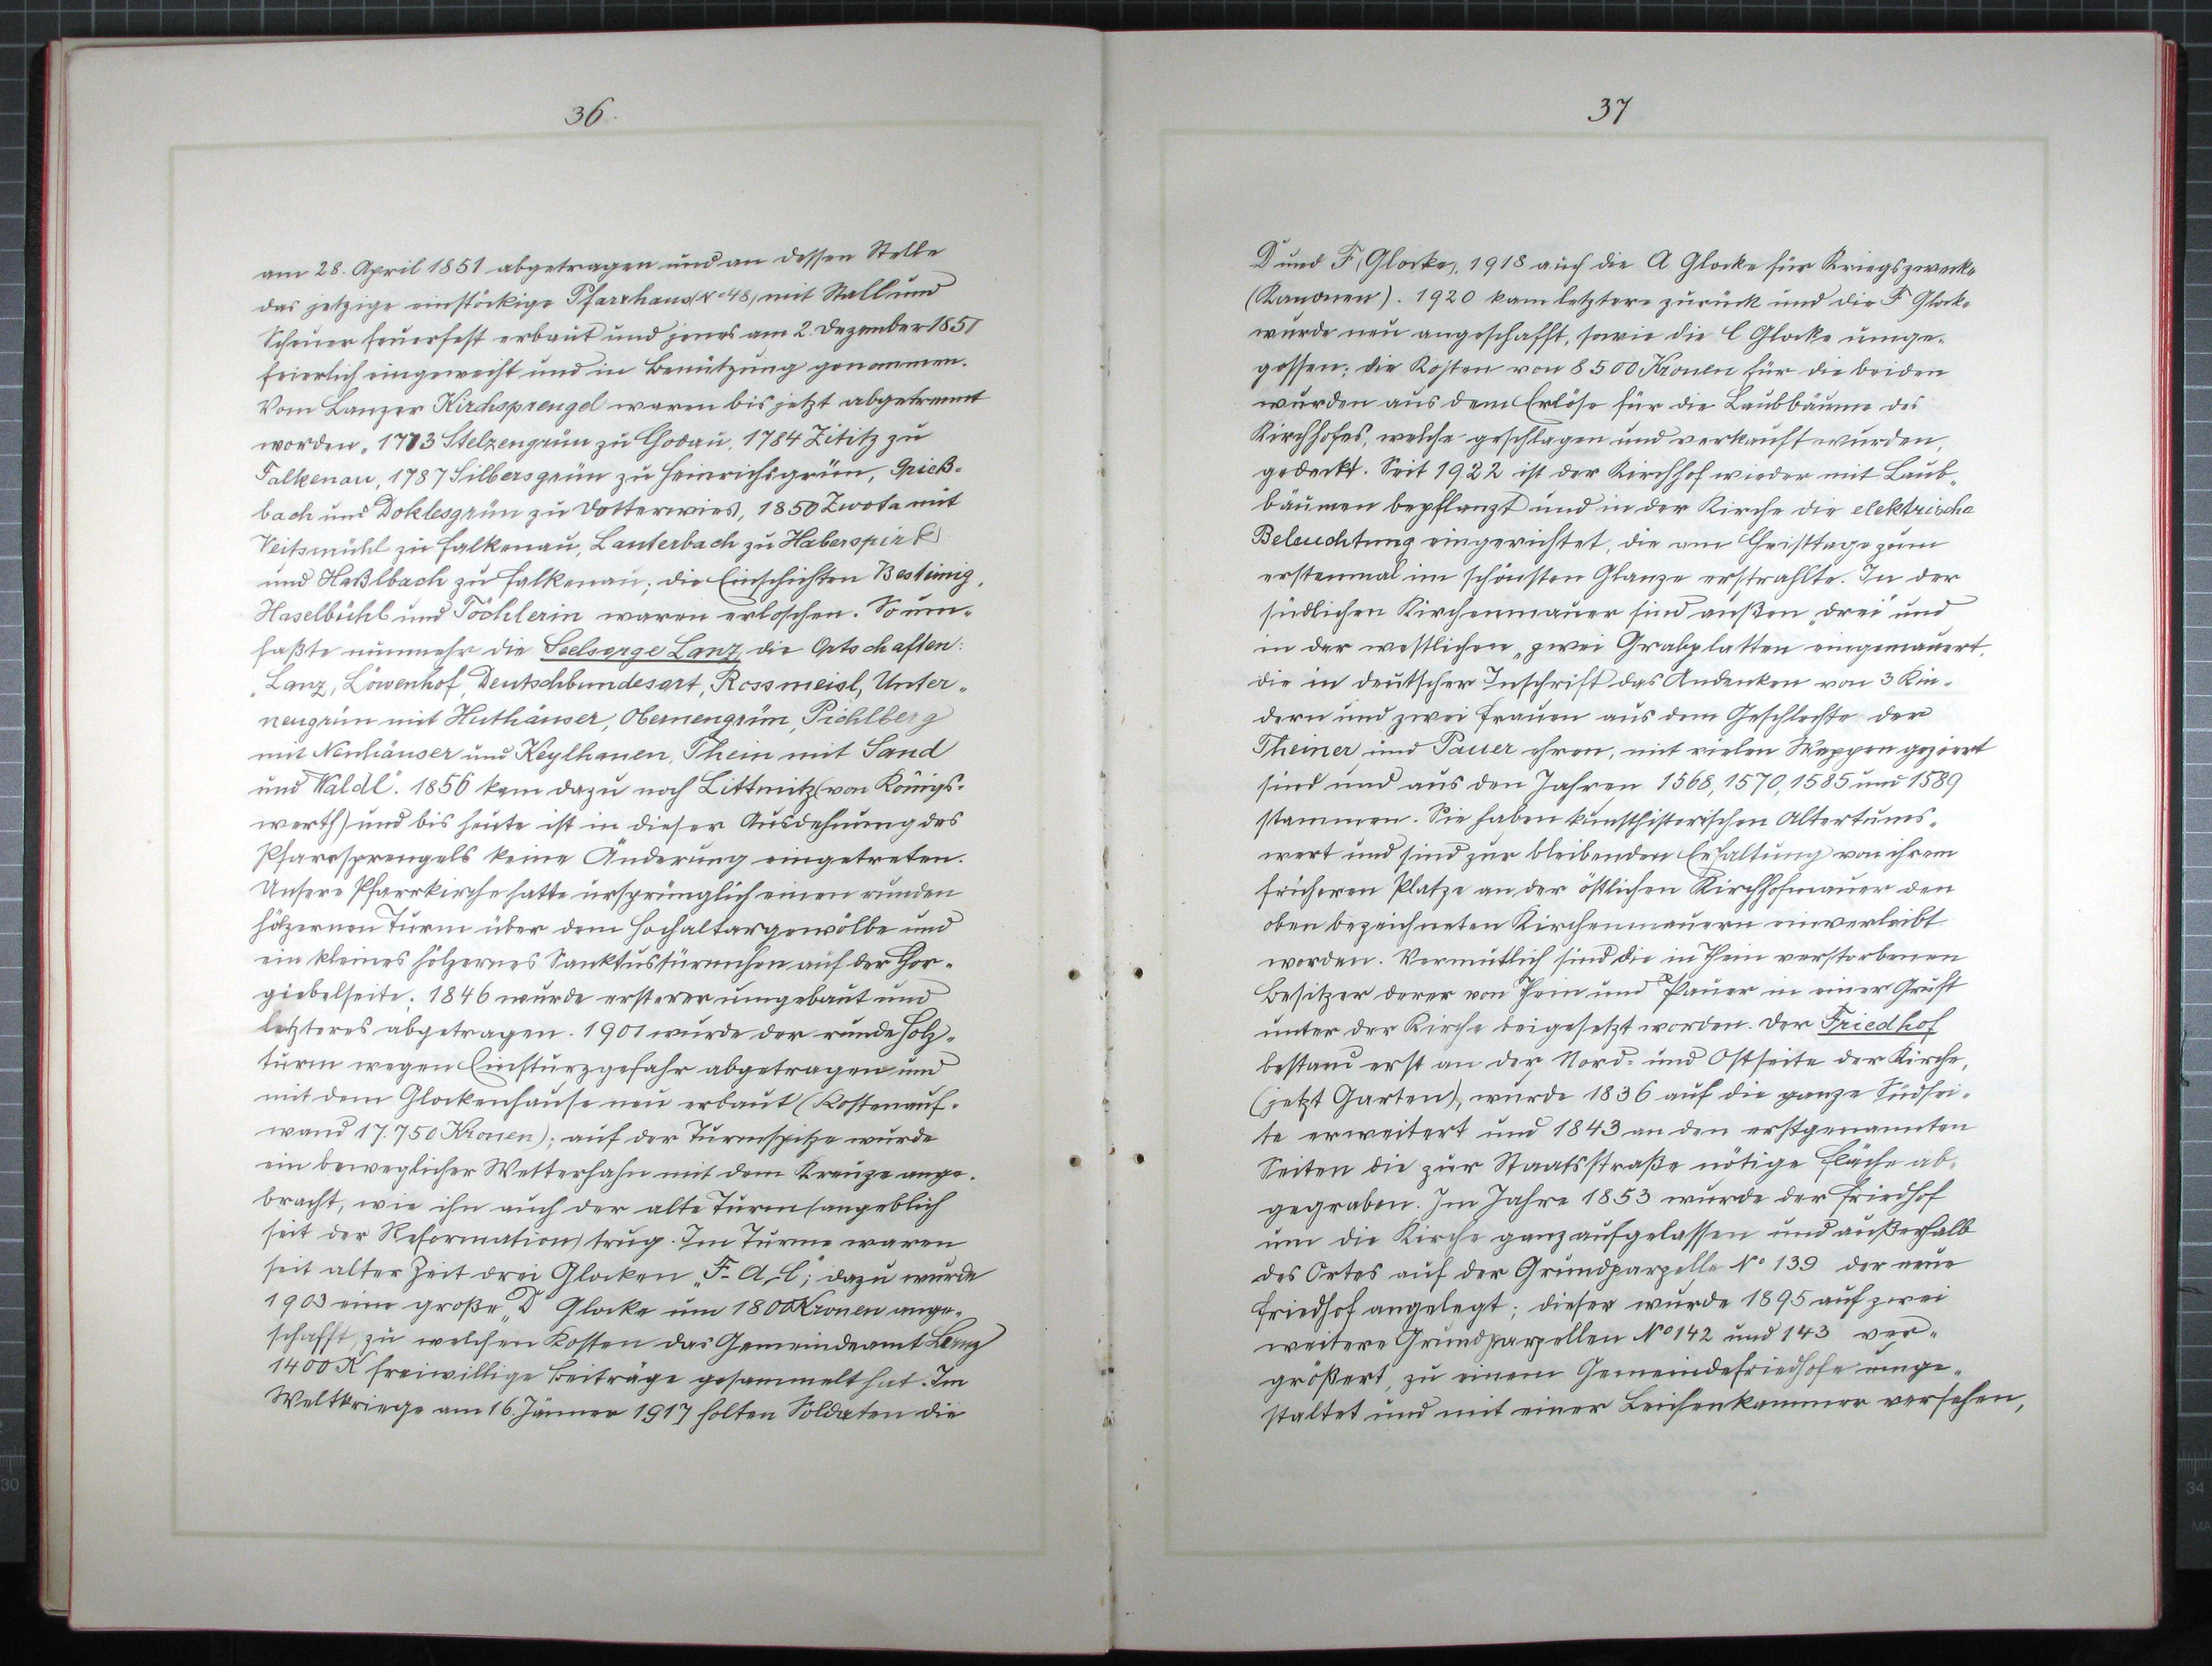 36.
am 28. April 1851 abgetragen und an dessen Stelle
das jetzige einstöckige Pfarrhaus (No 48) mit Stall und
Scheuer feuerfest erbaut und jenes am 2. Dezember 1851
feierlich eingeweiht und in Benützung genommen.
Vom Lanzer Kirchsprengel waren bis jetzt abgetrennt
worden „1773 Stelzengrün zu Chodau, 1784 Zititz zu
Falkenau, 1787 Silbersgrün zu Heinrichsgrün, Grieß-
bach und Doklesgrün zu Dotterwies, 1850 Zwota mit
Veitsmühl zu Falkenau, Lauterbach zu Haberspirk
und Haßlbach zu Falkenau; die Einschichten Bestinig,
Haselbühl und Töchlerin waren erloschen. So um-
faßte nunmehr die Seelsorge Lanz die Ortschaften:
„Lanz, Löwenhof, Deutschbundesort, Rossmeisl, Unter-
neugrün mit Huthäuser, Oberneugrün, Pichlberg
mit Neuhäuser und Keylhauen, Thein mit Sand
und Waldl“. 1856 kam dazu noch Littmitz (von Königs-
werth) und bis heute ist in dieser Ausdehnung des
Pfarrsprengels keine Änderung eingetreten.
Unsere Pfarrkirche hatte ursprünglich einen runden
hölzernen Turm über dem Hochaltargewölbe und
ein kleines hölzernes Sanktustürmchen auf der Chor-
giebelseite. 1846 wurde ersterer umgebaut und
letzteres abgetragen. 1901 wurde der runde Holz-
turm wegen Einsturzgefahr abgetragen und
mit dem Glockenhause neu erbaut (Kostenauf-
wand 17.750 Kronen); auf der Turmspitze wurde
ein beweglicher Wetterhahn mit dem Kreuze ange-
bracht, wie ihn auch der alte Turm (angeblich
seit der Reformation) trug. Im Turme waren
seit alter Zeit drei Glocken „F-A-C“; dazu wurde
1903 eine große „D“ Glocke um 1800 Kronen ange-
schafft, zu welchen Kosten das Gemeindeamt Lanz
1400 K freiwillige Beiträge gesammelt hat. Im
Weltkriege am 16. Jänner 1917 holten Soldaten die
37
D und F (Glocke), 1918 auch die A Glocke für Kriegszwecke
(Kanonen). 1920 kam letztere zurück und die F Glocke
wurde neu angeschafft, sowie die C Glocke umge-
gossen; die Kosten von 8500 Kronen für die beiden
wurden aus dem Erlöse für die Laubbäume des
Kirchhofes, welche geschlagen und verkauft wurden,
gedeckt. Seit 1922 ist der Kirchhof wieder mit Laub-
bäumen bepflanzt und in der Kirche die elektrische
Beleuchtung eingerichtet, die am Christtage zum
erstenmal im schönsten Glanze erstrahlte. In der
südlichen Kirchenmauer sind außen „drei“ und
in der westlichen „zwei Grabplatten eingemauert,
die in deutscher Inschrift das Andenken von 3 Kin-
dern und zwei Frauen aus dem Geschlechte der
Theiner und Pauer ehren, mit vielen Wappen geziert
sind und aus den Jahren 1568, 1570, 1585 und 1589
stammen. Sie haben kunsthistorischen Altertums-
wert und sind zur bleibenden Erhaltung von ihrem
früheren Platze an der östlichen Kirchhofmauer den
oben bezeichneten Kirchenmauern einverleibt
worden. Vermutlich sind die in Thein verstorbenen
Besitzer derer von Thein und Pauer in einer Gruft
unter der Kirche beigesetzt worden. Der Friedhof
bestand erst an der Nord- und Ostseite der Kirche,
(jetzt Garten), wurde 1836 auf die ganze Südsei-
te erweitert und 1843 an den erstgenannten
Seiten die zur Staatsstraße nötige Fläche ab-
gegraben. Im Jahre 1853 wurde der Friedhof
um die Kirche ganz aufgelassen und außerhalb
des Ortes auf der Grundparzelle No 139 der neue
Friedhof angelegt; dieser wurde 1895 auf zwei
weitere Grundparzellen No 142 und 143 ver-
größert, zu einem Gemeindefriedhofe umge-
staltet und mit einer Leichenkammer versehen,